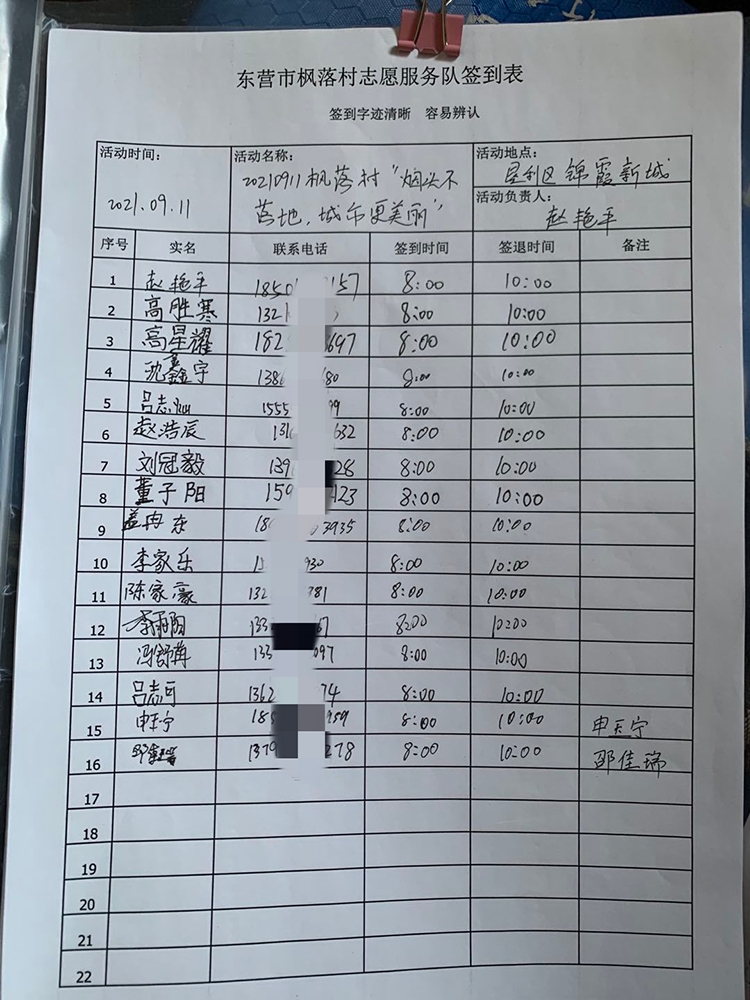 东营市枫落村志愿服务队签到表
签到字迹清晰 容易辨认
活动时间: 2021.09.11
活动名称: 20210911枫落村“烟头不落地,城市更美丽”
活动地点: 垦利区锦霞新城
活动负责人: 赵艳平
序号 实名 联系电话 签到时间 签退时间 备注
1 赵艳平 1850 157 8:00 10:00
2 高胜寒 132 8:00 10:00
3 高星耀 182 697 8:00 10:00
4 沈鑫宇 138 680 8:00 10:00
5 吕志灿 1555 99 8:00 10:00
6 赵浩辰 131 632 8:00 10:00
7 刘冠毅 139 28 8:00 10:00
8 董子阳 150 423 8:00 10:00
9 盖冉东 180 3935 8:00 10:00
10 李家乐 930 8:00 10:00
11 陈家豪 132 781 8:00 10:00
12 李雨阳 133 8:00 10:00
13 冯舒苒 133 097 8:00 10:00
14 吕志可 1362 74 8:00 10:00
15 申玉宁 185 959 8:00 10:00 申玉宁
16 1370 278 8:00 10:00 邵佳瑞
17
18
19
20
21
22